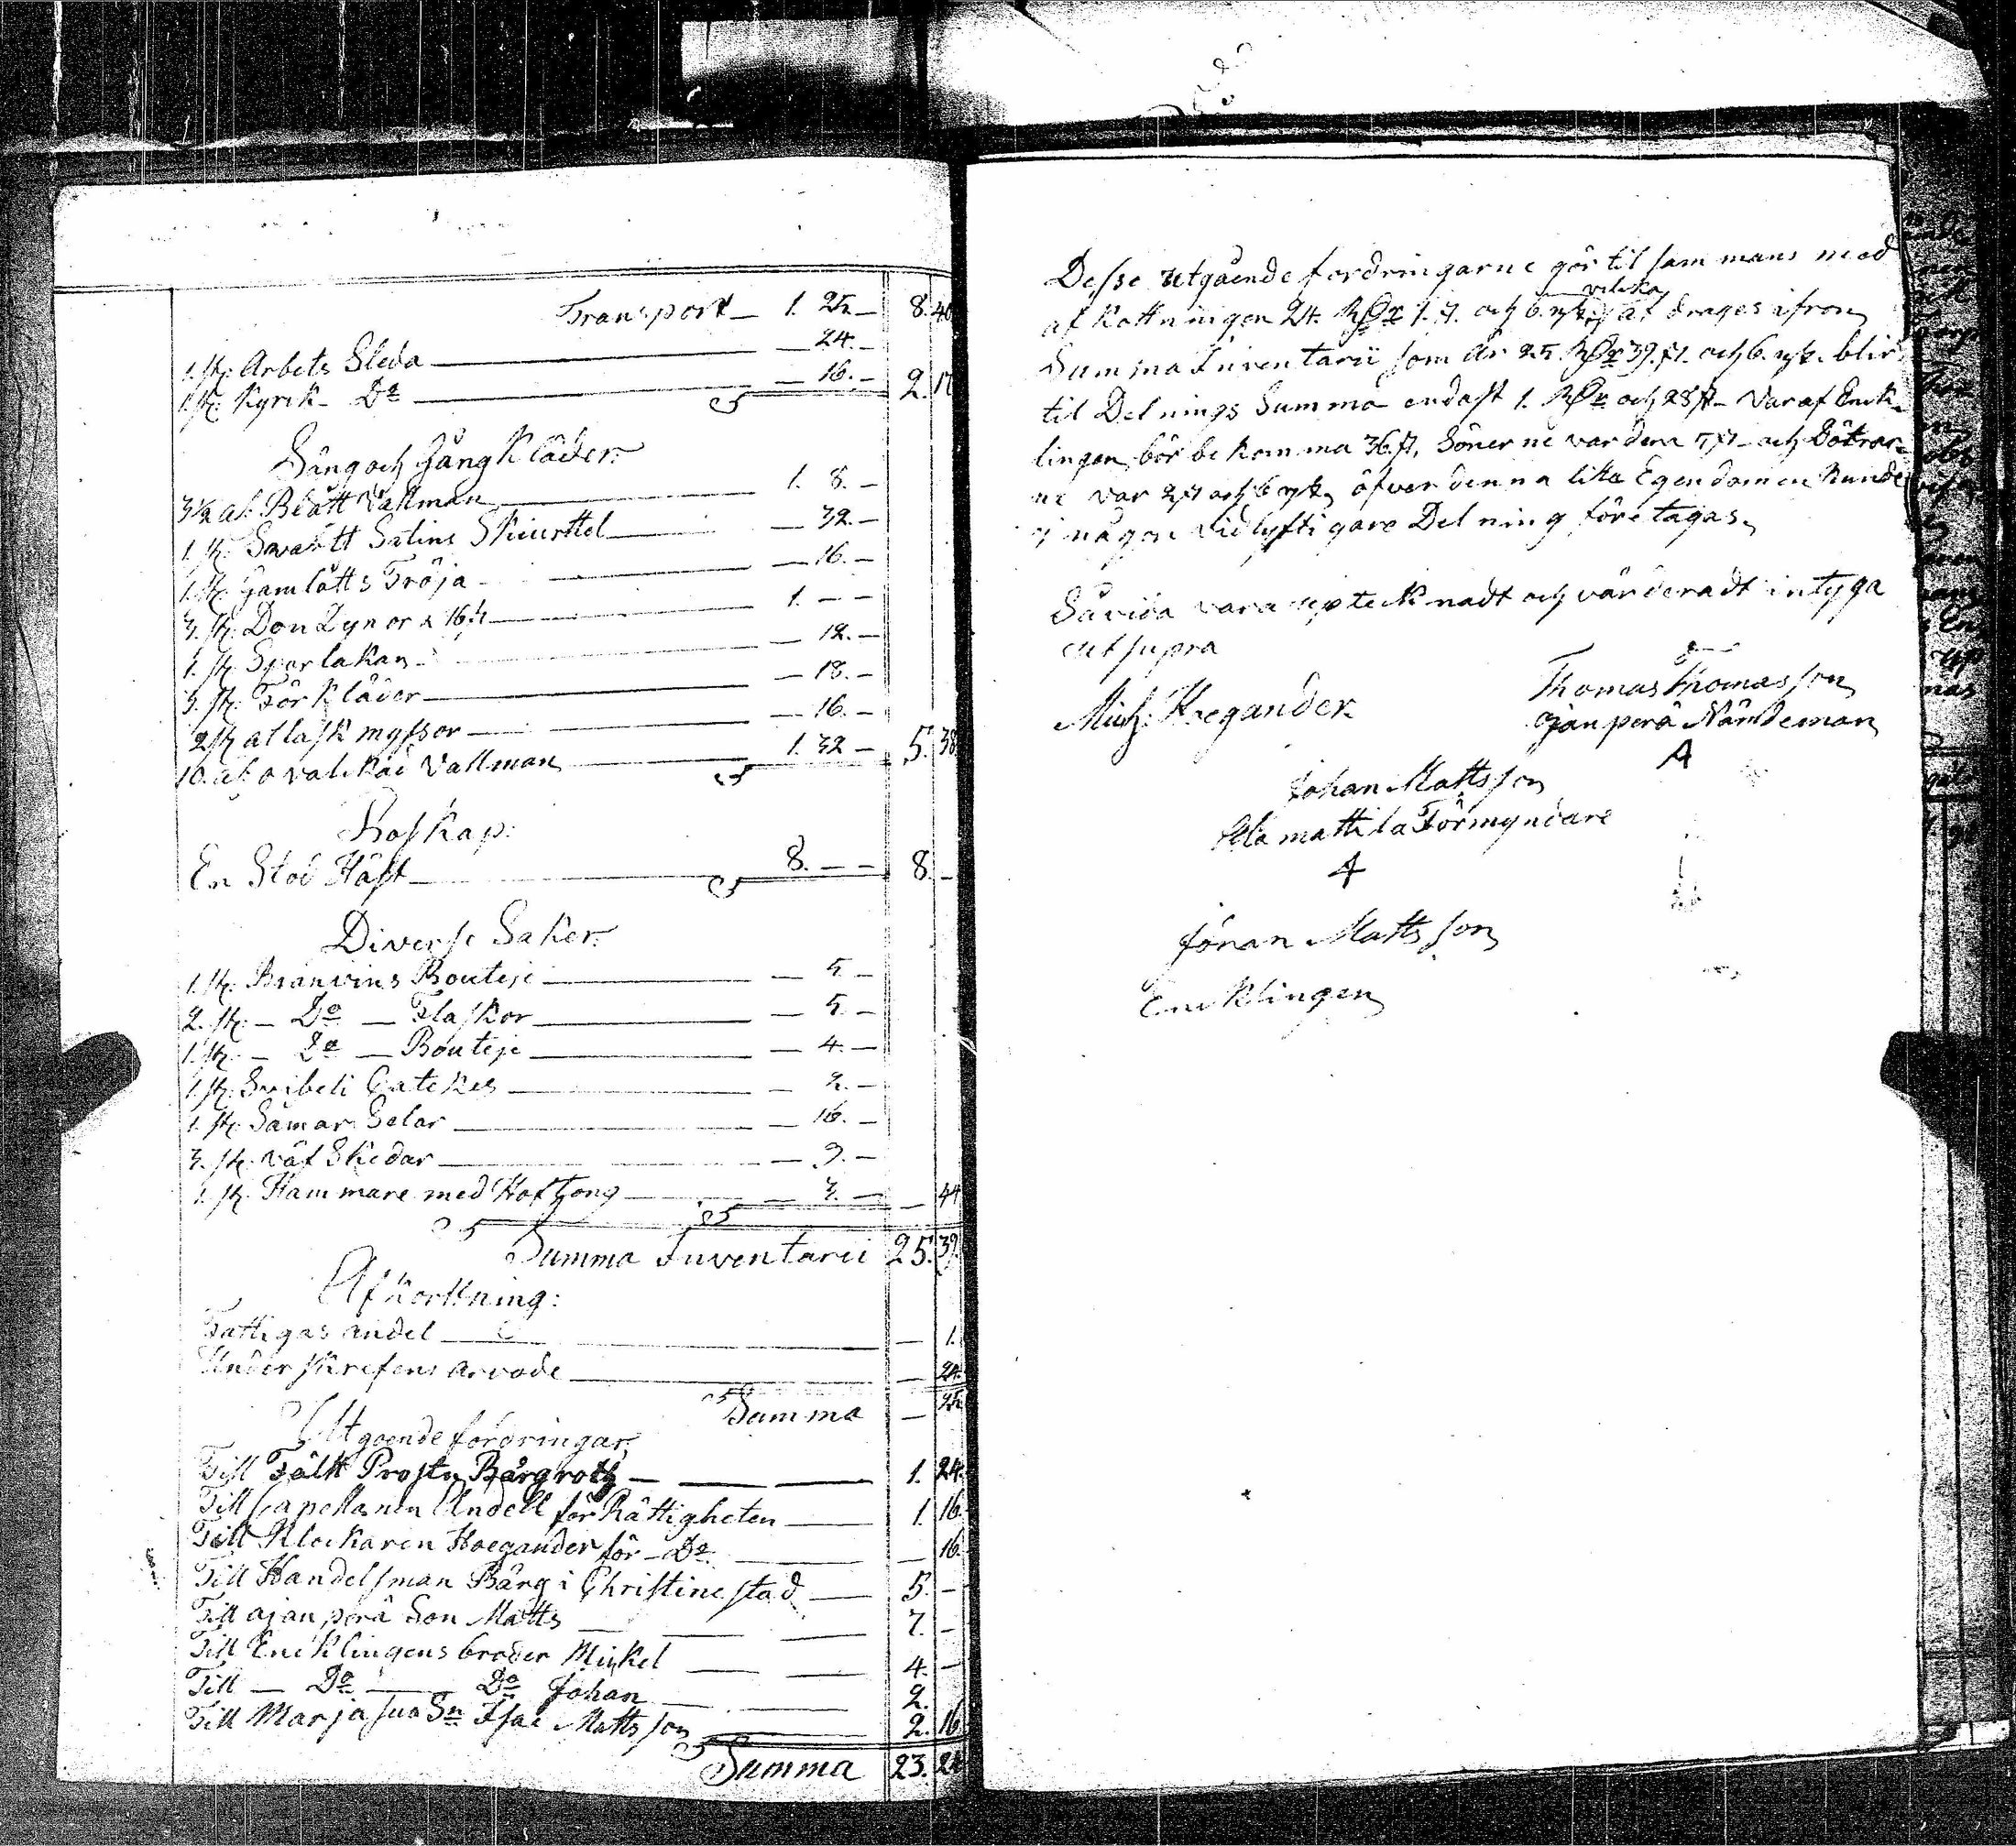 Transport 1. 25 8. 40
1. st. Arbets Släda 24. –
1. st. Kyrk Do 16. – 2. 17
Säng och Gång Kläder:
3 1/2 al. Blått Vallman 1. 8. –
1. st. Svartt Satins Skiurttel 32. –
1. st. Gamlätts Tröja 16. –
3. st. Don Dynor a 16 s 1. – –
1. st. Sparlakan 12. –
3. st. Förkläder 18. –
2 st atlask myssor 16. –
10. al. ovalckad Vallman 1. 32 – 5. 38
Boskap:
En Stod Häst 8. – – 8. –
Diverse Saker:
1. st. Bränvins Bouteje 5. –
2. st. – Do – Flaskor 5. –
1. st. – Do – Bouteje 4. –
1. st. 2. –
1. st. Såmar Selar 16. –
3. st. Väf Skedar 9. –
1. st. Hammare med Hoftong 3. – – 44
Summa Inventarii 25. 39
Afkortning:
Fattigas andel – 1.
Underskrefens arvode – 24.
Summa – 25
Utgoende fordringar
Till Fält Prostn Bärgroth – 1. 24.
Till Capellanen Andell för Rättigheten 1. 16
Till Klockaren Hoegander för – Do – 16.
Till Handelsman Bärg i Christinestad 5. –
Till ajanperä Son Matts 7. –
Till Encklingens broder Mickel 4. –
Till – Do – Do Johan 2.
Till Marjasua Sn Isac Mattsson 2. 16
Summa 23. 24
Desse utgående fordringarne gör til sammans med
vilcka
af kottningen 24. RDr 1. s. och 6. rst. af drages ifron
Summa Inventarii som är 25. RDr 39. s. och 6. rst. blir
til Delnings Summa endast 1. RDr och 28 s – Varaf Enck-
lingen bör bekomma 36. s, Sönerne vardera 5 s – och Dötrar-
ne var 2 s och 6 rst, öfver denna lilla Egendomen kunde
ej någon vidlyftigare Delning företagas,
Såvida vara upptecknadt och värderadt intyga
ut supra
Mich: Hoegander
Thomas Thomasson
ajanperä Nämdeman
Johan Mattsson
Ylä mattila Förmyndare
Jöran Mattsson
Encklingen